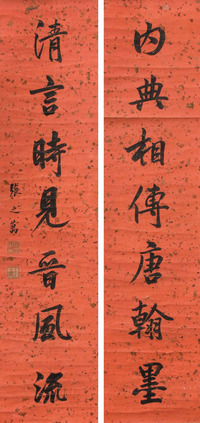 內典相傳唐翰墨
清言時見晉風流
張之萬